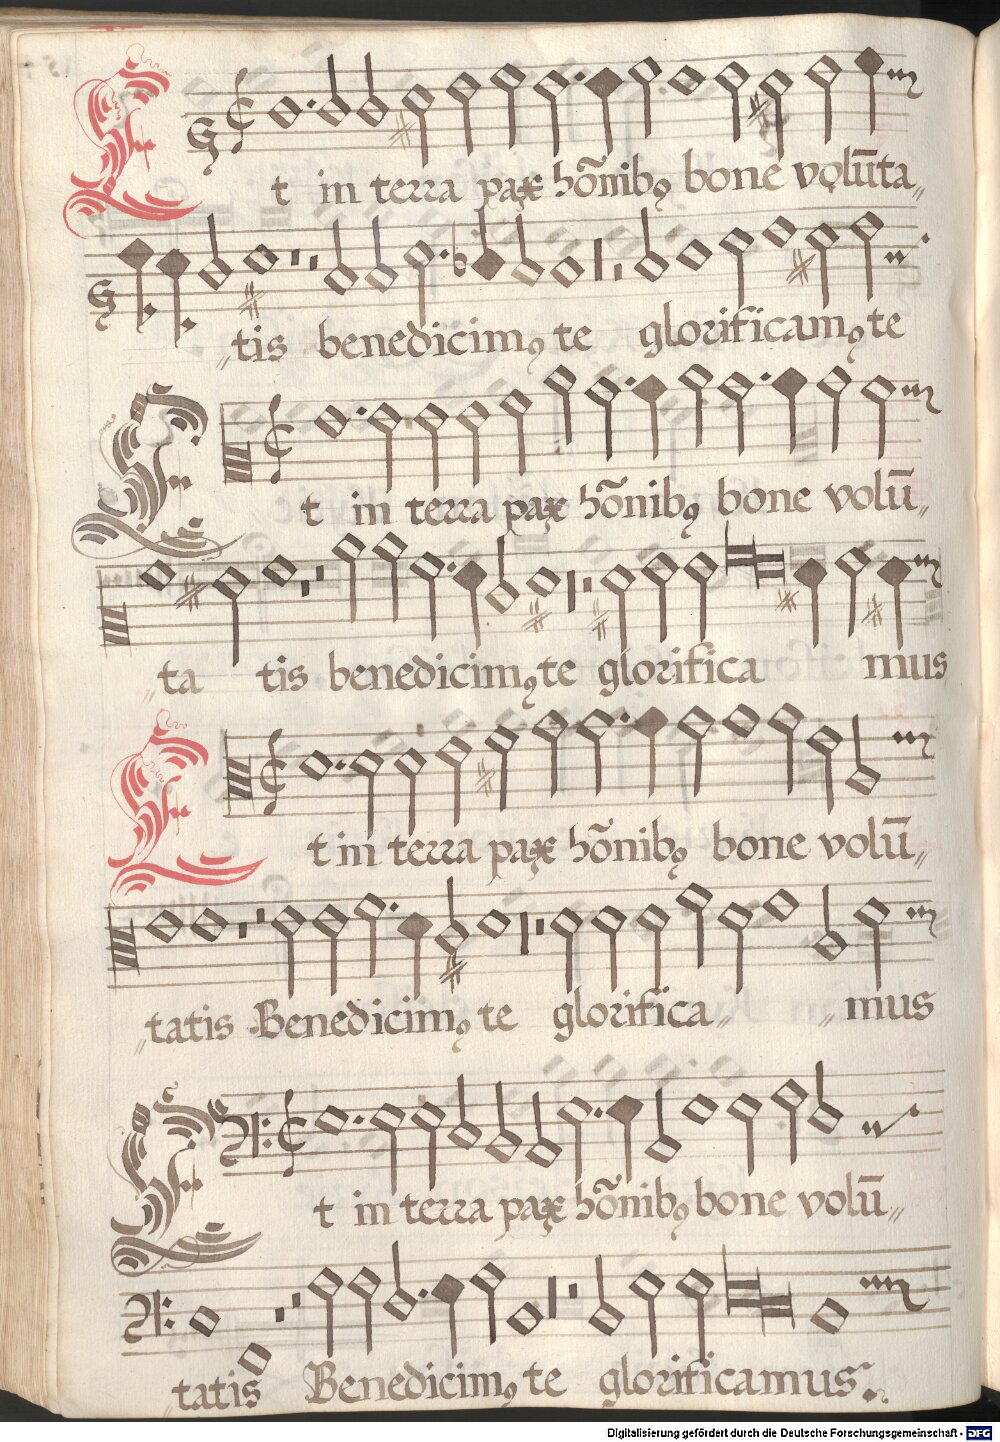 Et in terra pax hōīnibꝯ bone volūta〃
〃tis benedicimꝯ te glorificamꝯ te
Et in terra pax hōnibꝯ bone volū〃
〃ta tis benedicimꝯ te glorifica mus
Et in terra pax hōnibꝯ bone volū〃
〃tatis Benedicimꝯ te glorifica〃 〃mus
Et in terra pax hōnibꝯ bone volū〃
〃tatis Benedicimꝯ te glorificamus
Digitalisierung gefördert durch die Deutsche Forschungsgemeinschaft - DFG